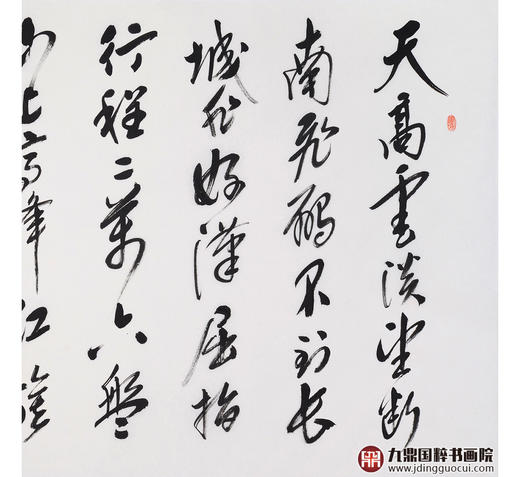 天高雲淡望断
南飛雁不到长
城非好漢屈指
行程二萬六盤
山上高峰红旗
九鼎国粹书画院
www.jdingguocui.com